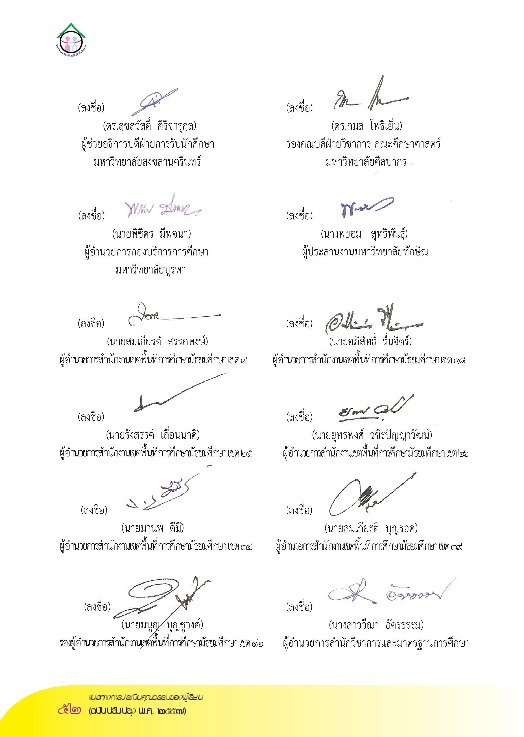 (ลงชื่อ)
(ดร.สุขสวัสดิ์ ศิริจารุกุล)
ผู้ช่วยอธิการบดีฝ่ายการรับนักศึกษา
มหาวิทยาลัยสงขลานครินทร์
(ลงชื่อ)
(ดร.กมล โพธิเย็น)
รองคณบดีฝ่ายวิชาการ คณะศึกษาศาสตร์
มหาวิทยาลัยศิลปากร
(ลงชื่อ)
(นายพิจิตร
ผู้อำนวยการกองบริการการศึกษา
มหาวิทยาลัยบูรพา
(ลงชื่อ)
(นางพยอม สุทธิพันธุ์)
ผู้ประสานงานมหาวิทยาลัยทักษิณ
(ลงชื่อ)
(นายสมเกียรติ สรรคพงษ์)
ผู้อำนวยการสำนักงานเขตพื้นที่การศึกษามัธยมศึกษา เขต
(ลงชื่อ)
(นายอภิสิทธิ์ รื่นจิตร์)
ผู้อำนวยการสำนักงานเขตพื้นที่การศึกษามัธยมศึกษา เขต
(ลงชื่อ)
(นายรังสรรค์
ผู้อำนวยการสำนักงานเขตพื้นที่การศึกษามัธยมศึกษา เขต
(ลงชื่อ)
(นายยุทธพงศ์ วชิรปัญญาวัฒน์)
ผู้อำนวยการสำนักงานเขตพื้นที่การศึกษามัธยมศึกษา เขต
(ลงชื่อ)
(นายมานพ ดีมี)
ผู้อำนวยการสำนักงานเขตพื้นที่การศึกษามัธยมศึกษา เขต
(ลงชื่อ)
(นายสมเกียรติ บุญรอด)
ผู้อำนวยการสำนักงานเขตพื้นที่การศึกษามัธยมศึกษา เขต ๓๙
(ลงชื่อ)
(นายมนูญ บุญชูวงค์)
รองผู้อำนวยการสำนักงานเขตพื้นที่การศึกษามัธยมศึกษา เขต ๔๒
(ลงชื่อ)
(นางสาววีณา อัครธรรม)
ผู้อำนวยการสำนักวิชาการและมาตรฐานการศึกษา
แนวทางการประเมินคุณธรรมของผู้เรียน
(ฉบับปรับปรุง พ.ศ. ๒๕๕๗)